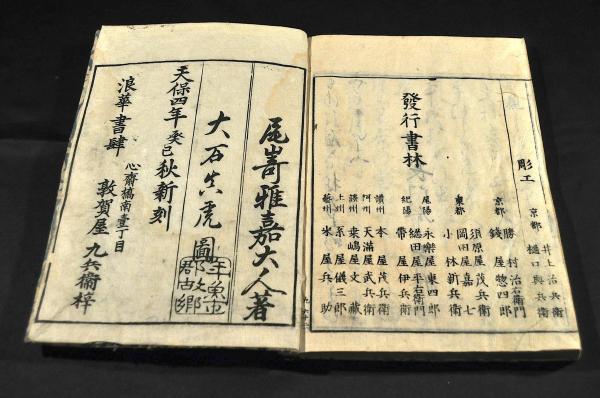 彫工
京都
井上治兵衛
樋口與兵衛
發行書林
京都
勝村治右衛門
錢屋惣四郎
東都
須原屋茂兵衛
岡田屋嘉七
小林新兵衛
尾陽 永樂屋東四郎
紀陽
綛田屋平右衛門
帶屋伊兵衛
讃州 本屋茂兵衛
阿州 天滿屋武兵衛
來嶋屋文藏
上州 糸屋儀三郎
藝州 米屋兵助
尾嵜雅嘉大人著
大石真虎圖
天保四年癸巳秋新刻
浪華書肆
心齋橋南壹丁目
敦賀屋九兵衞梓